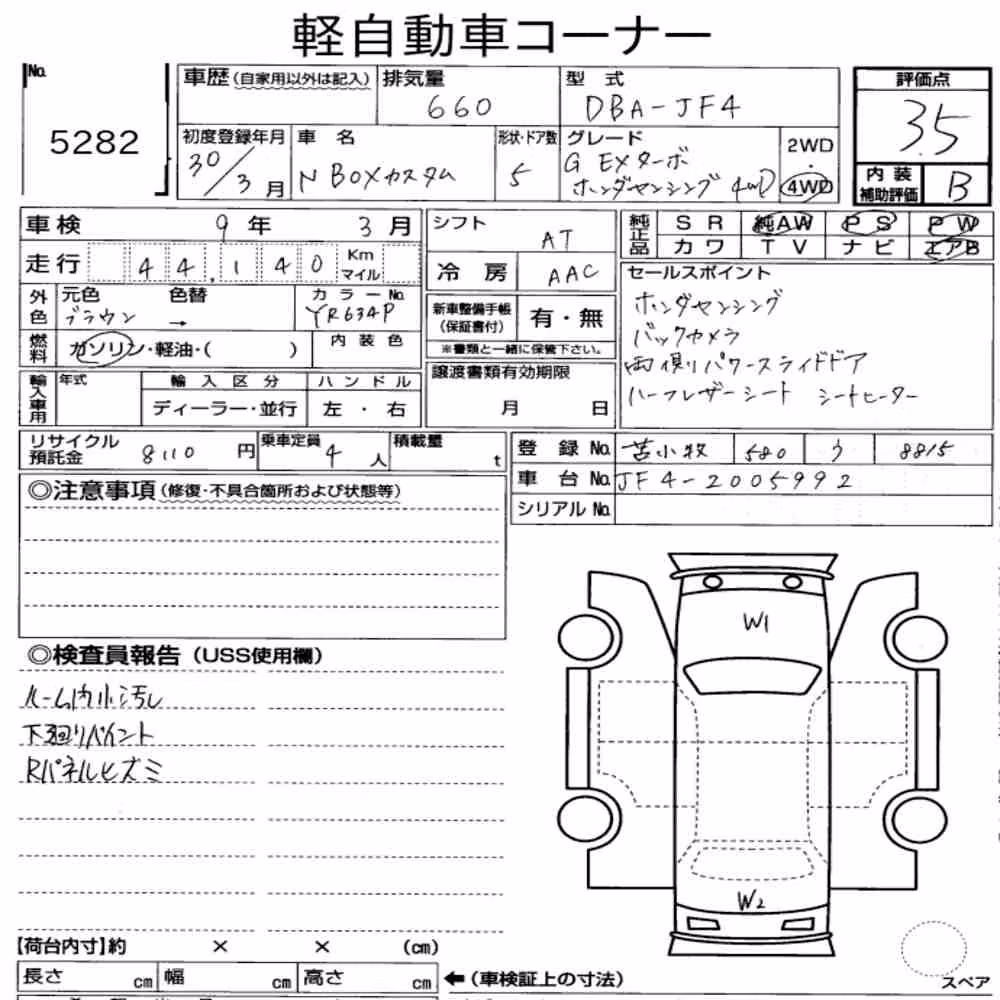 軽自動車コーナー
No. 5282
車歴(自家用以外は記入) 排気量 660 型式 DBA-JF4
評価点 3.5
初度登録年月 30/3月 車名 N BOXカスタム 形状・ドア数 5 グレード G EXターボ ホンダセンシング 4WD 2WD・4WD
内装補助評価 B
車検 9年 3月 シフト AT
純正品 SR 純AW PS PW
カワ TV ナビ エアB
走行 44,140 Km マイル 冷房 AAC
外色 元色 ブラウン 色替 → カラーNo. YR634P
新車整備手帳(保証書付) 有・無
※書類と一緒に保管下さい。
燃料 ガソリン・軽油・( ) 内装色
セールスポイント
ホンダセンシング
バックカメラ
両側パワースライドドア
ハーフレザーシート シートヒーター
輸入車用 年式 輸入区分 ディーラー・並行 ハンドル 左・右
譲渡書類有効期限 月 日
リサイクル預託金 8110円 乗車定員 4人 積載量 t
登録No. 苫小牧 580 う 8815
車台No. JF4-2005992
シリアルNo.
◎注意事項(修復・不具合箇所および状態等)
◎検査員報告(USS使用欄)
ルーム内小汚し
下廻りペイント
Rパネルヒズミ
W1
W2
【荷台内寸】約 × × (cm)
長さ cm 幅 cm 高さ cm ←(車検証上の寸法)
スペア